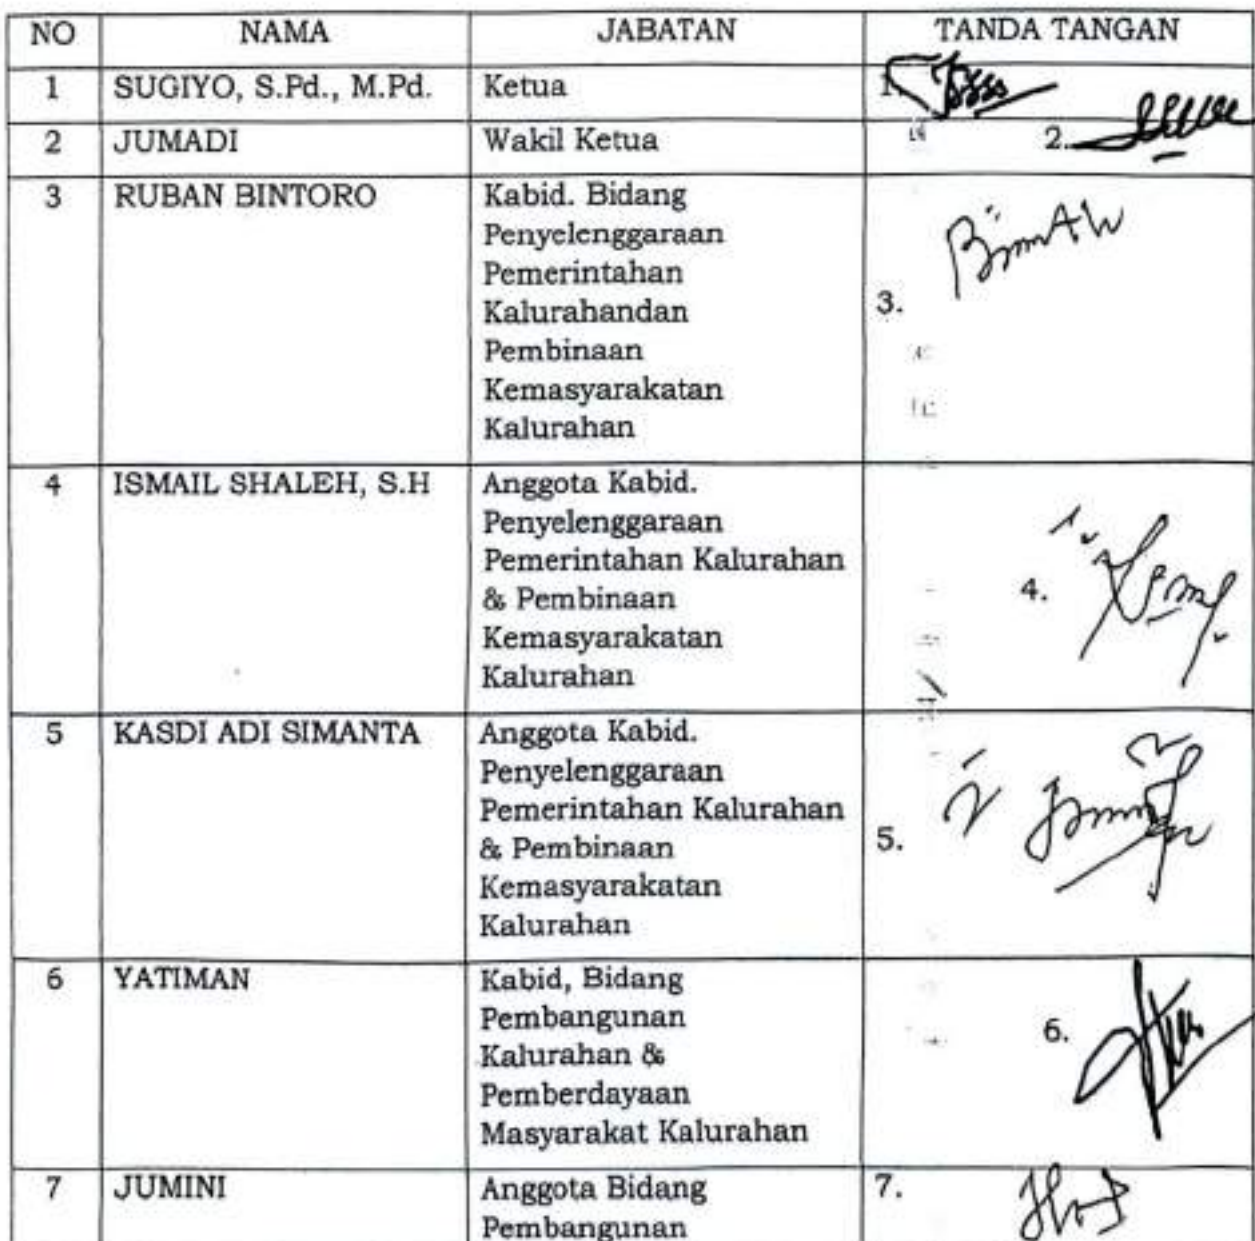 NO NAMA JABATAN TANDA TANGAN
1 SUGIYO, S.Pd., M.Pd. Ketua 1
2 JUMADI Wakil Ketua 2.
3 RUBAN BINTORO Kabid. Bidang
Penyelenggaraan
Pemerintahan
Kalurahandan
Pembinaan
Kemasyarakatan
Kalurahan
3.
4 ISMAIL SHALEH, S.H Anggota Kabid.
Penyelenggaraan
Pemerintahan Kalurahan
& Pembinaan
Kemasyarakatan
Kalurahan
4.
5 KASDI ADI SIMANTA Anggota Kabid.
Penyelenggaraan
Pemerintahan Kalurahan
& Pembinaan
Kemasyarakatan
Kalurahan
5.
6 YATIMAN Kabid, Bidang
Pembangunan
Kalurahan &
Pemberdayaan
Masyarakat Kalurahan
6.
7 JUMINI Anggota Bidang
Pembangunan
7.